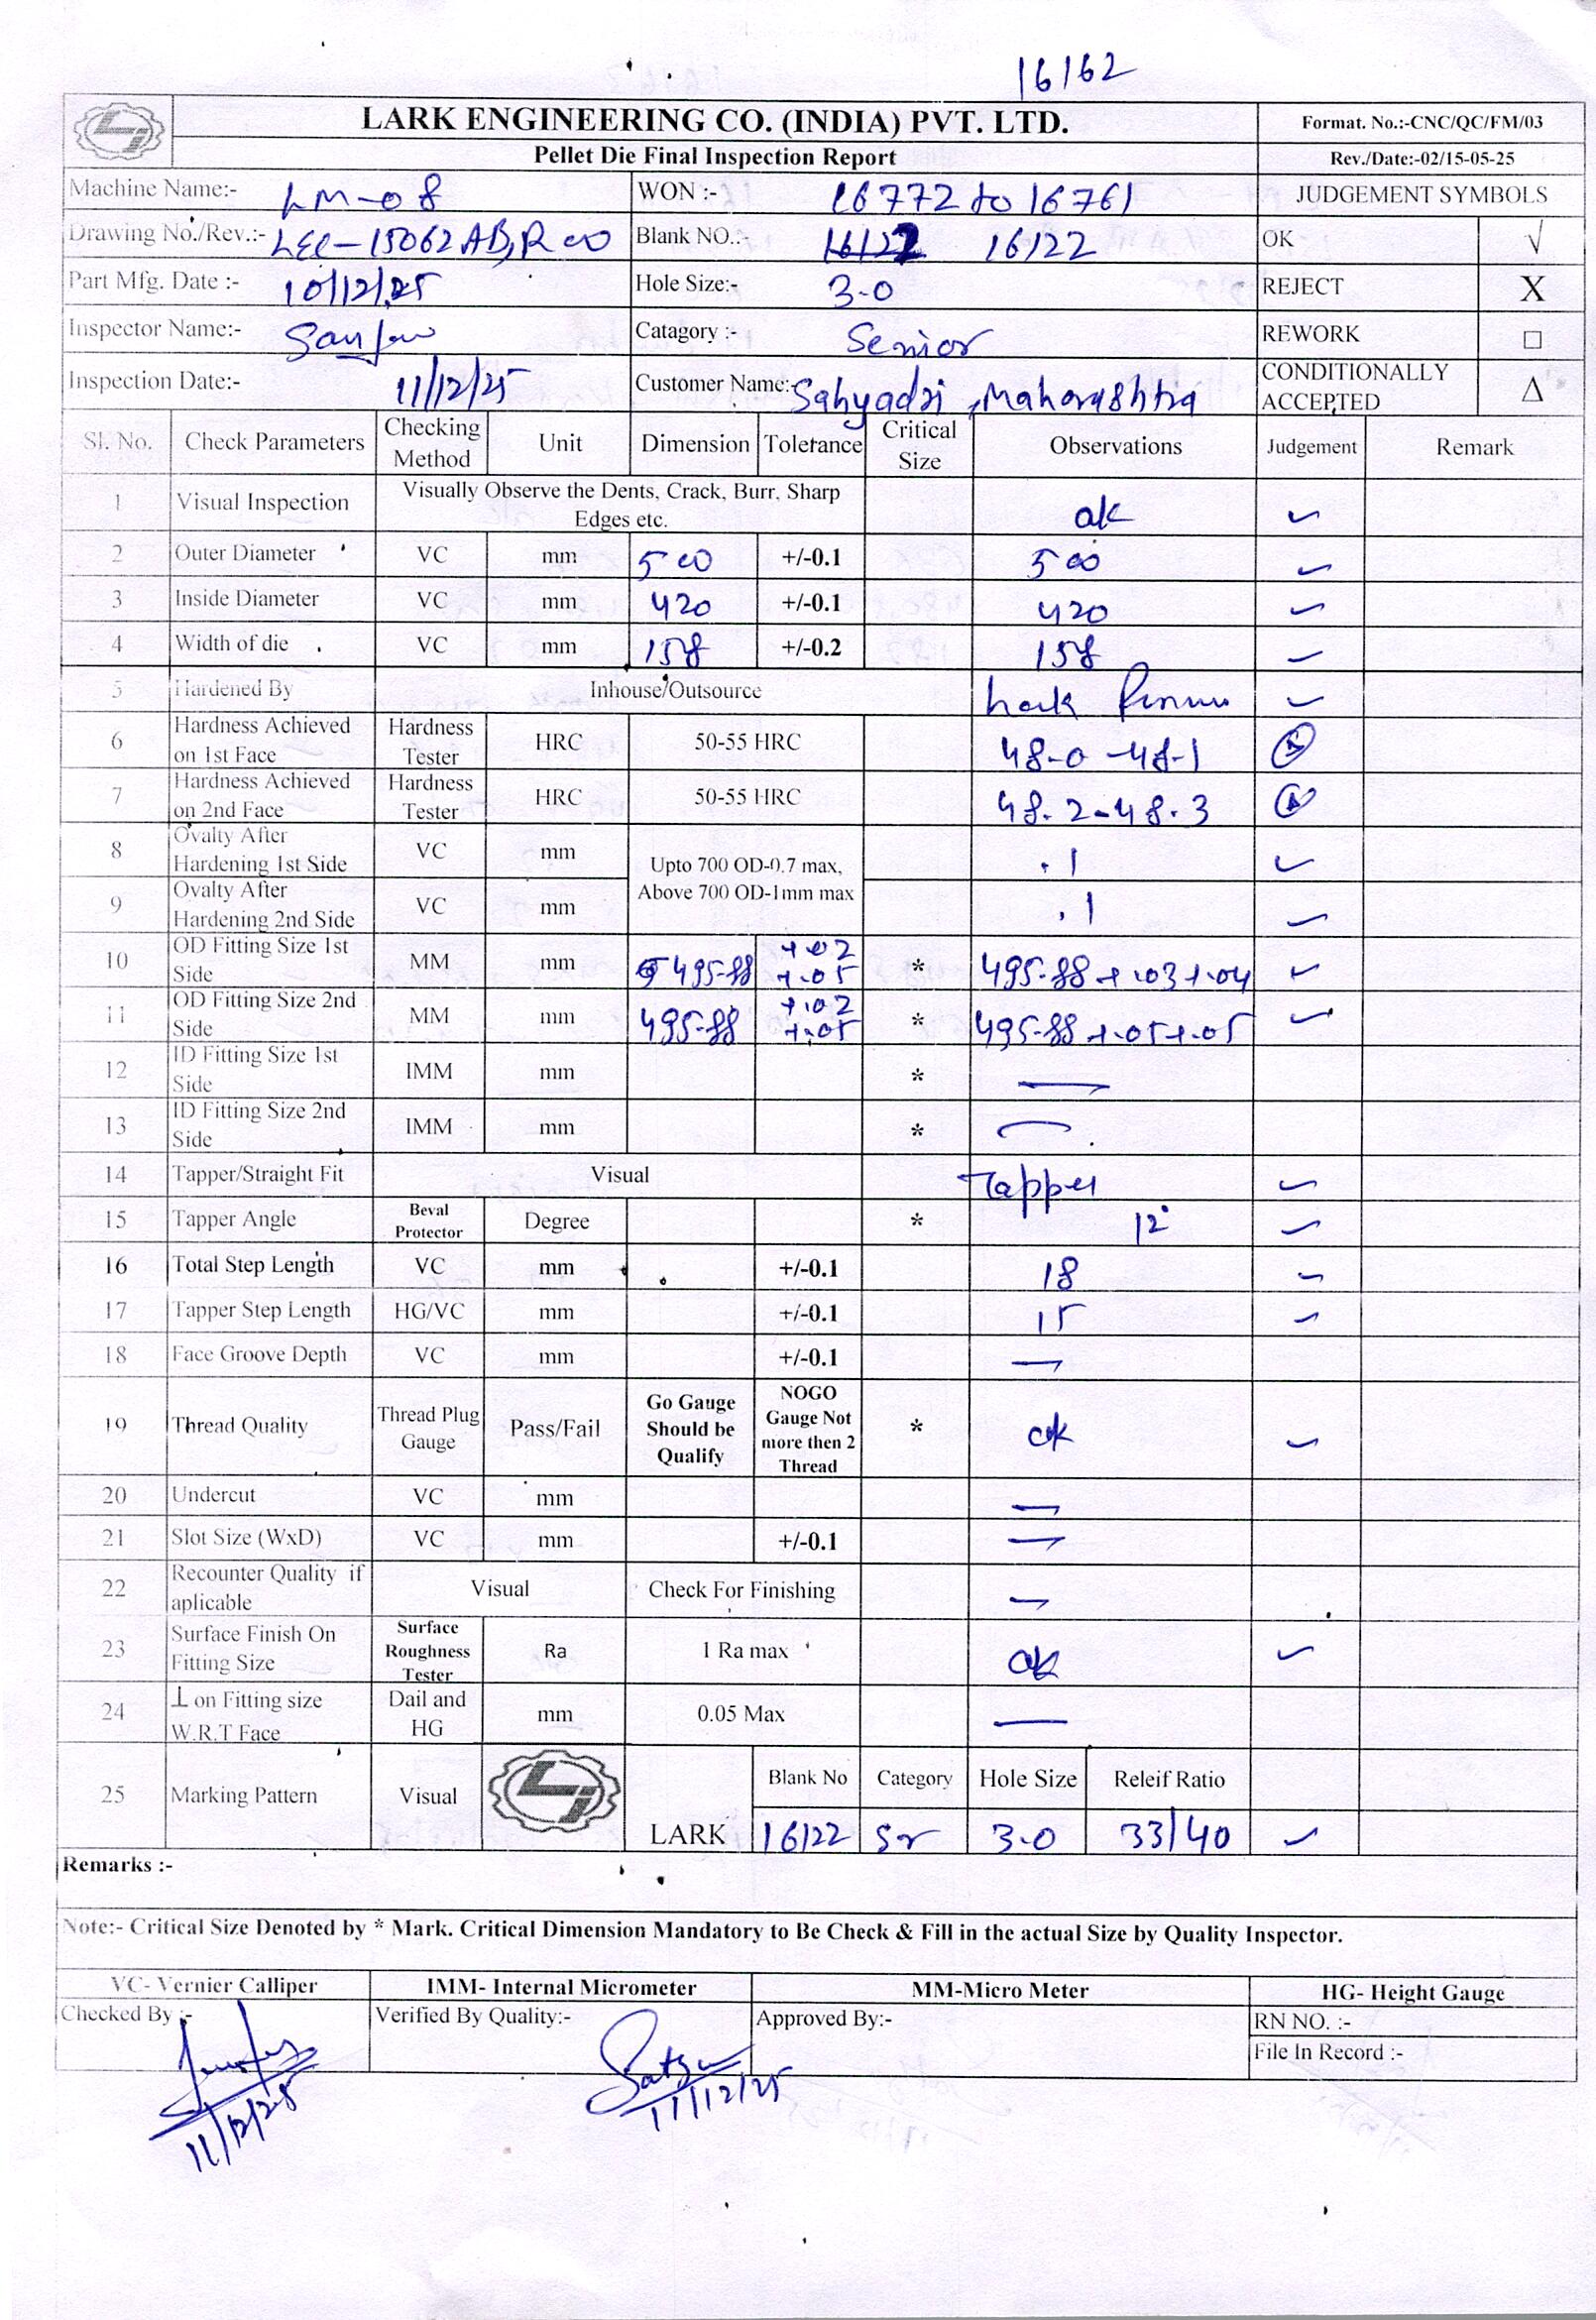 16162
LARK ENGINEERING CO. (INDIA) PVT. LTD.
Format. No.:-CNC/QC/FM/03
Pellet Die Final Inspection Report
Rev./Date:-02/15-05-25
Machine Name:- LM-08 WON :- 16772 to 16761 JUDGEMENT SYMBOLS
Drawing No./Rev.:- LEC-15062 AB, R 00 Blank NO.:- 16122 OK √
Part Mfg. Date :- 10/12/25 Hole Size:- 3.0 REJECT X
Inspector Name:- Sanjew Catagory :- Senior REWORK □
Inspection Date:- 11/12/25 Customer Name:- Sahyadri, Maharashtra CONDITIONALLY ACCEPTED Δ
Sl. No. Check Parameters Checking Method Unit Dimension Tolerance Critical Size Observations Judgement Remark
1 Visual Inspection Visually Observe the Dents, Crack, Burr, Sharp Edges etc. ok ✓
2 Outer Diameter VC mm 500 +/-0.1 500 ✓
3 Inside Diameter VC mm 420 +/-0.1 420 ✓
4 Width of die VC mm 158 +/-0.2 158 ✓
5 Hardened By Inhouse/Outsource Lark ✓
6 Hardness Achieved on 1st Face Hardness Tester HRC 50-55 HRC 48-0 -48-1
7 Hardness Achieved on 2nd Face Hardness Tester HRC 50-55 HRC 48.2-48.3
8 Ovalty After Hardening 1st Side VC mm Upto 700 OD-0.7 max, Above 700 OD-1mm max .1 ✓
9 Ovalty After Hardening 2nd Side VC mm .1 ✓
10 OD Fitting Size 1st Side MM mm 495.88 +.02 +.05 * 495.88 +.03+.04 ✓
11 OD Fitting Size 2nd Side MM mm 495.88 +.02 +.05 * 495.88 +.05+.05 ✓
12 ID Fitting Size 1st Side IMM mm * —
13 ID Fitting Size 2nd Side IMM mm * —
14 Tapper/Straight Fit Visual Tapper ✓
15 Tapper Angle Beval Protector Degree * 12° ✓
16 Total Step Length VC mm +/-0.1 18 ✓
17 Tapper Step Length HG/VC mm +/-0.1 15 ✓
18 Face Groove Depth VC mm +/-0.1 —
19 Thread Quality Thread Plug Gauge Pass/Fail Go Gauge Should be Qualify NOGO Gauge Not more then 2 Thread * ok ✓
20 Undercut VC mm —
21 Slot Size (WxD) VC mm +/-0.1 —
22 Recounter Quality if aplicable Visual Check For Finishing —
23 Surface Finish On Fitting Size Surface Roughness Tester Ra 1 Ra max ok ✓
24 ⊥ on Fitting size W.R.T Face Dail and HG mm 0.05 Max —
25 Marking Pattern Visual LARK Blank No Category Hole Size Releif Ratio
16122 Sr 3.0 33/40 ✓
Remarks :-
Note:- Critical Size Denoted by * Mark. Critical Dimension Mandatory to Be Check & Fill in the actual Size by Quality Inspector.
VC- Vernier Calliper IMM- Internal Micrometer MM-Micro Meter HG- Height Gauge
Checked By :- Verified By Quality:- Approved By:- RN NO. :-
File In Record :-
11/12/25 11/12/25